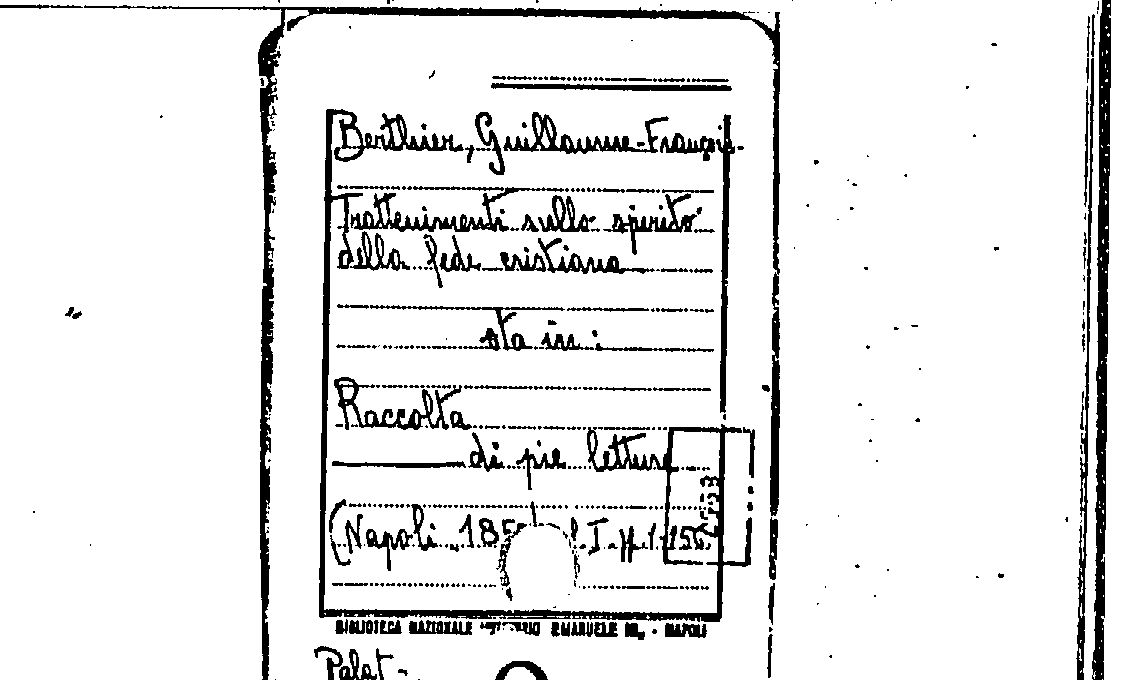 Berthier, Guillaume-François-
Trattenimenti sullo spirito
della fede cristiana
sta in:
Raccolta
di pie letture
(Napoli 185
BIBLIOTECA NAZIONALE VITTORIO EMANUELE III, - NAPOLI
Palat-